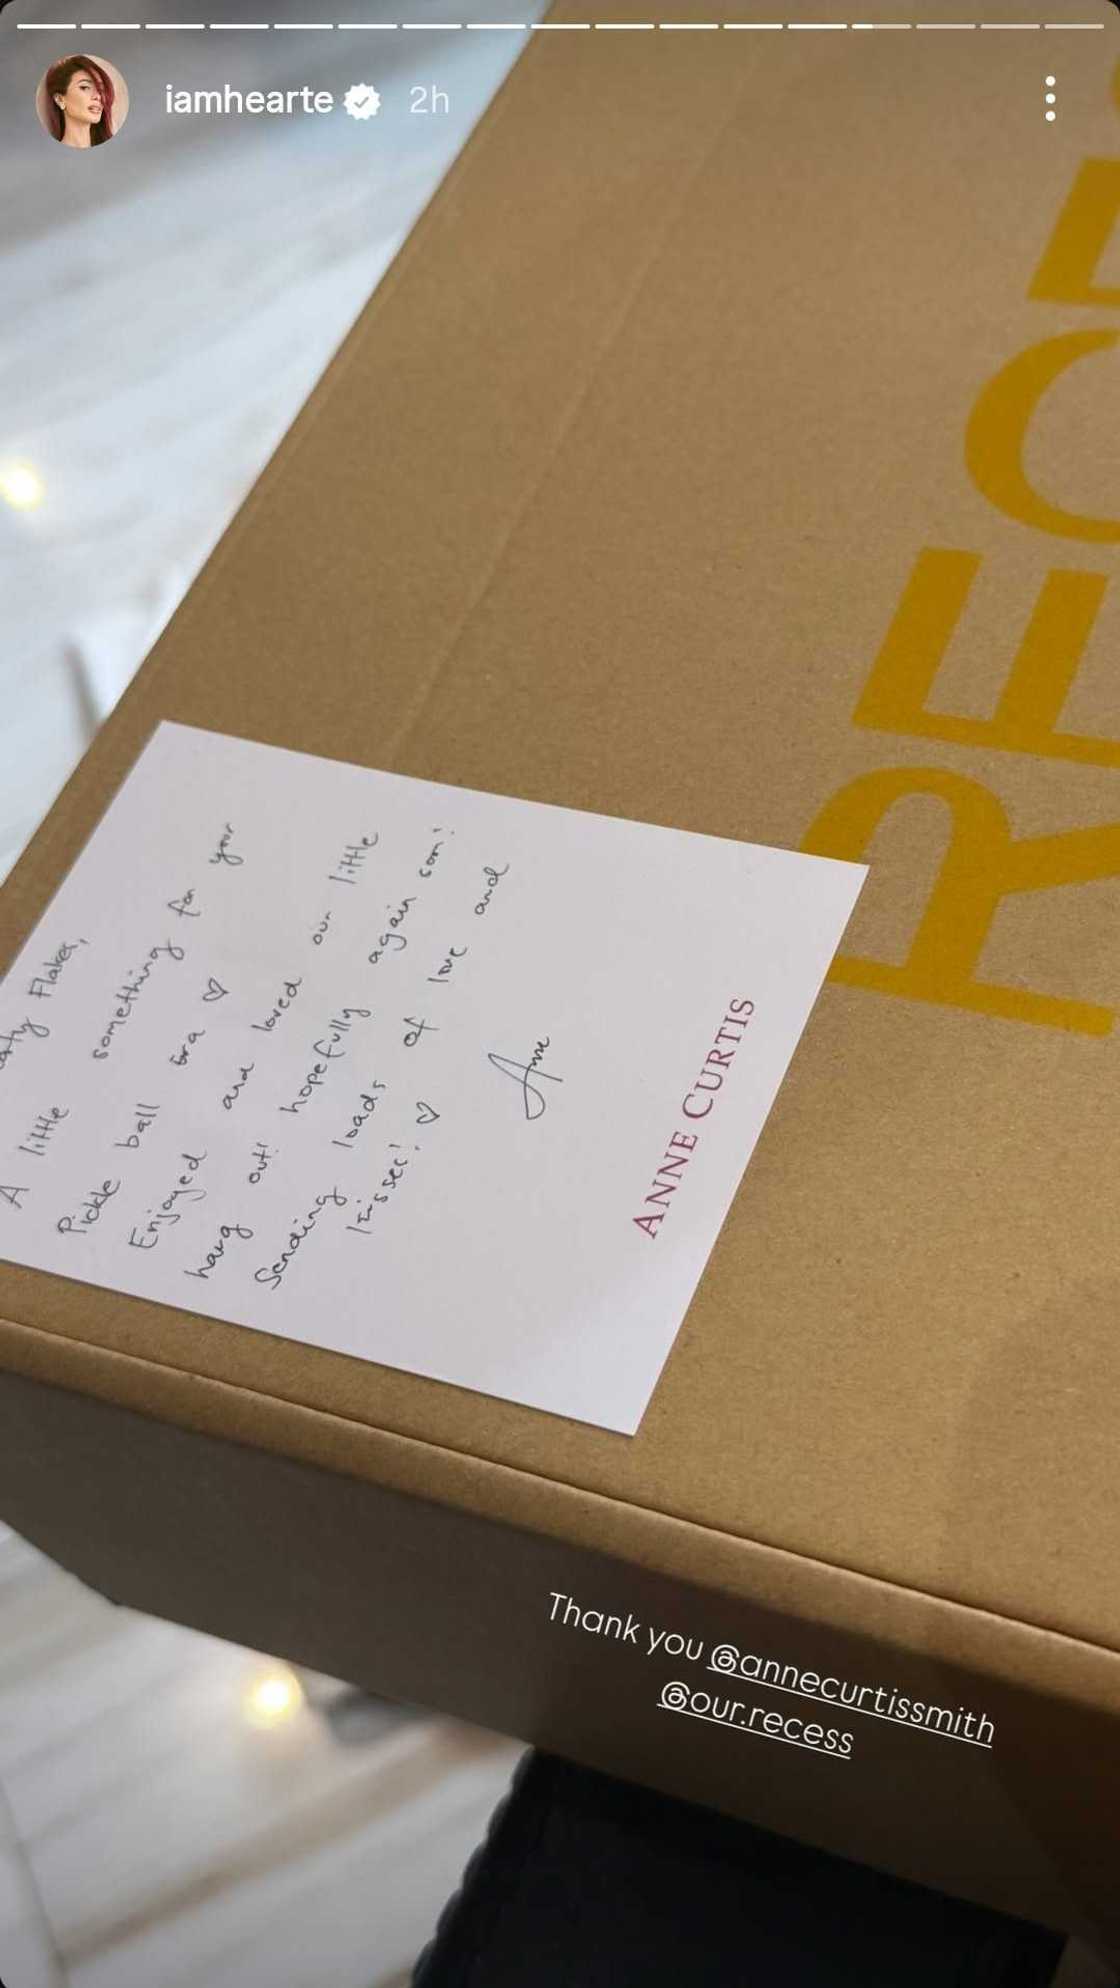 iamhearte
2h
RECE
Flakes,
A little something for your
Pickle ball Era ♡
Enjoyed and loved our little
hang out! hopefully again soon!
Sending loads of love and
kisses! ♡
Anne
ANNE CURTIS
Thank you @annecurtissmith
@our.recess